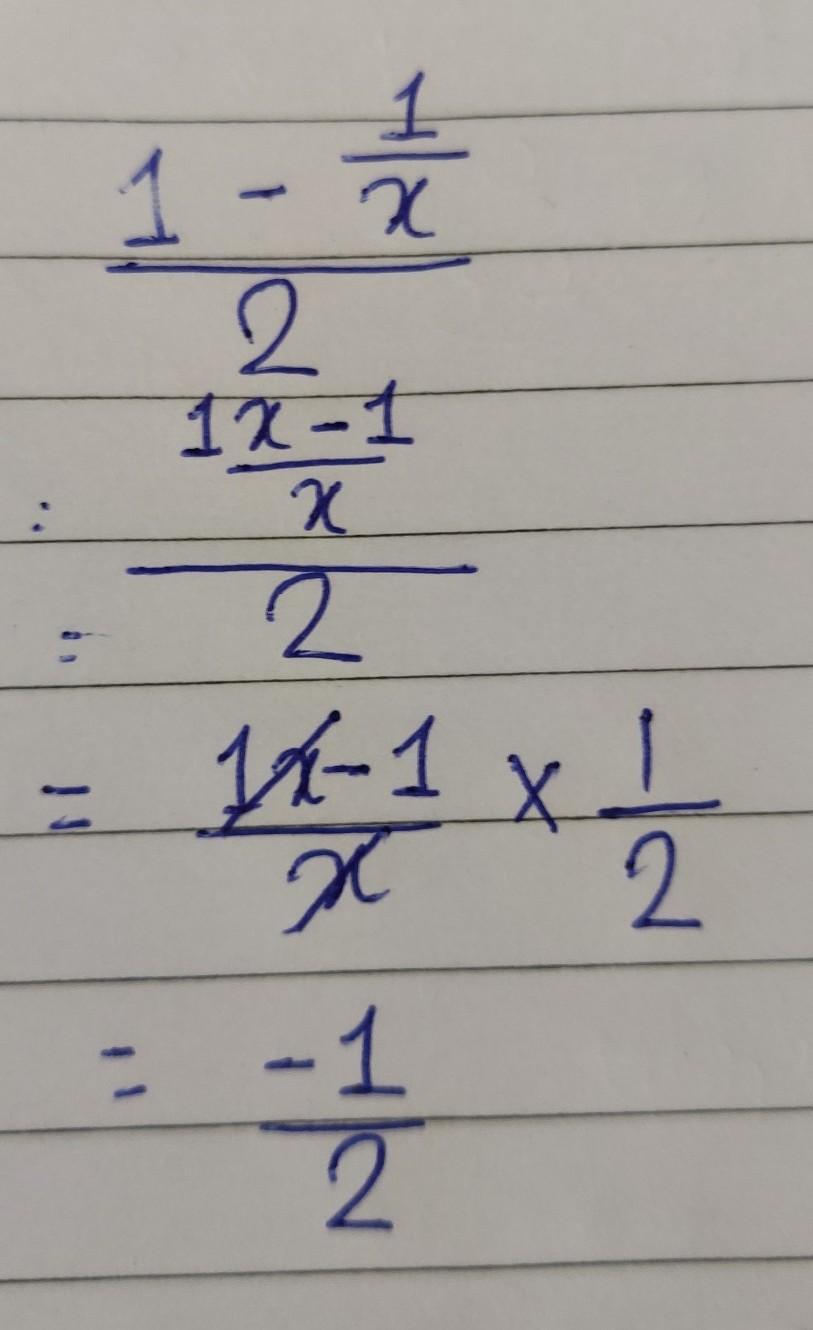 1 - 1/x
2
: 1x-1
x
= 2
= 1x-1/x × 1/2
= -1/2